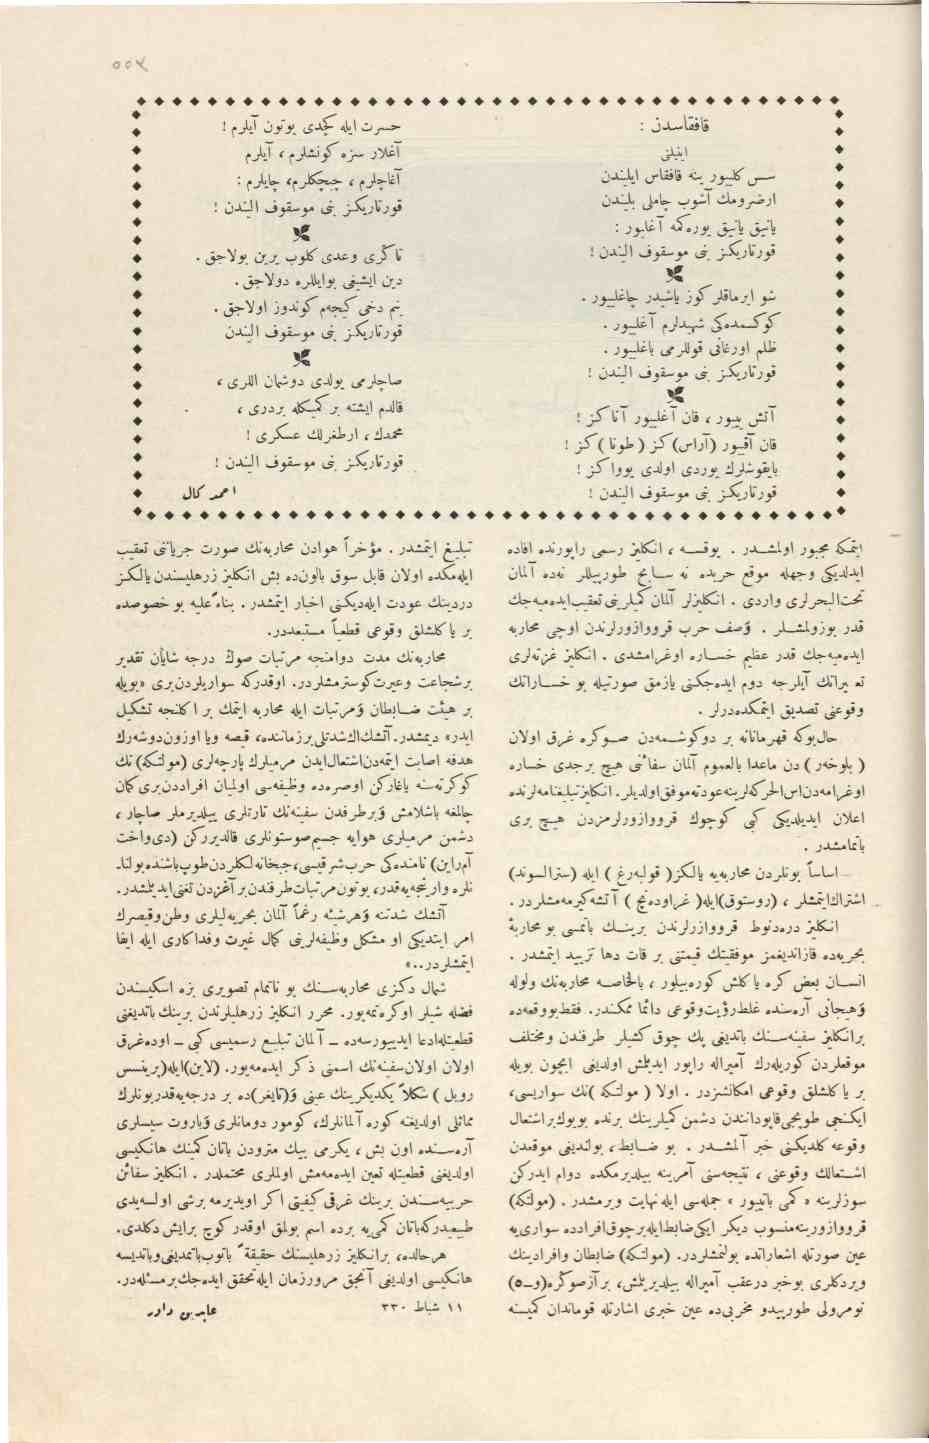 ٥٥٧
قافقاسدن :
ایكیلتی
سس كلییور ینه قافقاس ایلیندن
ارضرومك آشوب چاملی بلیندن
یانیق یانیق یوره‌كمه آغلیور :
قورتاریكز بنی موسقوف الیندن !
شو ایرماقلر كوز یاشیدر چاغلییور .
كوكسمده‌كی شهیدلرم آغلییور .
ظلم اورغانی قوللرمی باغلییور .
قورتاریكز بنی موسقوف الیندن !
آتش ییور ، قان آغلییور آناكز !
قان آقییور (آراس)كز ( طونا )كز !
بایقوشلرك یوردی اولدی یوواكز !
قورتاریكز بنی موسقوف الیندن !
حسرت ایله كچدی بوتون آیلرم !
آغلار سزه كونشلرم ، آیلرم
آغاچلرم ، چیچكلرم ، چایلرم :
قورتاریكز بنی موسقوف الیندن !
تاكری وعدی كلوب یرین بولاجق .
دین ایشیغی بوایللره دولاجق .
بنم دخی كیجه‌م كوندوز اولاجق .
قورتاریكز بنی موسقوف الیندن
صاچلرمی یولدی دوشمان اللری ،
قالدم ایشته بر كمیكله بردری ،
محمدك ، ارطغرلك عسكری !
قورتاریكز بنی موسقوف الیندن !
احمد كمال
ایتمكه مجبور اولمشدر . یوقسه ، انكلیز رسمی راپورنده افاده
ایدلدیكی وجهله موقع حربده نه سابح طورپیللر نه‌ده آلمان
تحت‌البحرلری واردی . انكلیزلر آلمان كمیلرینی تعقیب ایده‌میه‌جك
قدر بوزولمشلر . وصف حرب قرووازورلرندن اوچی محاربه
ایده‌میه‌جك قدر عظیم خساره اوغرامشدی . انكلیز غزته‌لری
تعمیراتك آیلرجه دوام ایده‌جكنی یازمق صورتیله بو خساراتك
وقوعنی تصدیق ایتمكده‌درلر .
حال‌بوكه قهرمانانه بر دوكوشمه‌دن صوكره غرق اولان
( بلوخر ) دن ماعدا بالعموم آلمان سفائنی هیچ برجدی خساره
اوغرامه‌دن اس‌الحركه‌لرینه عودته موفق اولدیلر . انكلیز تبلیغنامه‌لرنده
اعلان ایدیلدیكی كبی كوچوك قرووازورلرمزدن هیچ بری
باتمامشدر .
اساساً بونلردن محاربه‌یه یالكز ( قولبه‌رغ ) ایله (سترالسوند)
اشتراك ایتمشلر ، (روستوق) ایله ( غراودنچ ) آتشه كیرمه‌مشلردر .
انكلیز دره‌دنوط قرووازرلرندن برینك باتمسی بو محاربهٔ
بحریه‌ده قازاندیغمز موفقیتك قیمتنی بر قات دها تزیید ایتمشدر .
انسان بعض كره یاكلش كوره‌بیلور ، بالخاصه محاربه‌نك ولوله
وهیجانی آره‌سنده غلط رؤیت وقوعی دائما ممكندر. فقط بووقعه‌ده
برانكلیز سفینه‌سنك باتدیغی پك چوق كشیلر طرفندن ومختلف
موقعلردن كوریله‌رك آمیراله راپور ایدیلمش اولدیغی ایچون بویله
بر یاكلشلق وقوعی امكانسزدر . اولا ( مولتكه )نك سواریسی ،
ایكنجی طوپجی قاپودانندن دشمن كمیلرینك برنده بویوك براشتعال
وقوعه كلدیكنی خبر آلمشدر . بو ضابط ، بولندیغی موقعدن
اشتعالك وقوعنی ، نتیجه‌سنی آمرینه بیلدیرمكده دوام ایدركن
سوزلرینه « كمی باتییور » جمله‌سی ایله نهایت ویرمشدر . (مولتكه)
قروازورینه منسوب دیكر ایكی ضابط ایله برچوق افرادده سواری‌یه
عین صورتله اشعاراتده بولنمشلردر. (مولتكه) ضابطان وافرادینك
ویردكلری بوخبر درعقب آمیراله بیلدیریلمش ، برآز صوكره(و-٥)
نومرولی طورپیدو مخربی‌ده عین خبری اشارتله قوماندان كمیسنه
تبلیغ ایتمشدر . مؤخراً هوادن محاربه‌نك صورت جریانی تعقیب
ایله‌مكده اولان قابل سوق بالون‌ده بش انكلیز زرهلیسندن یالكز
دردینك عودت ایله‌دیكنی اخبار ایتمشدر . بناءً علیه بو خصوصده
بر یاكلشلق وقوعی قطعیاً مستبعددر.
محاربه‌نك مدت دوامنجه مرتبات صوك درجه شایان تقدیر
برشجاعت وغیرت كوسترمشلردر. اوقدركه سواریلردن بری «بویله
بر هیئت ضابطان ومرتبات ایله محاربه ایتمك بر اكلنجه تشكیل
ایدر» دیمشدر. آتشك اك شدتلی برزماننده ، قیصه ویا اوزون دوشه‌رك
هدفه اصابت ایتمه‌دن اشتعال ایدن مرمیلرك پارچه‌لری (مولتكه) نك
كوكرته‌سنه یاغاركن اوصره‌ده وظیفه‌سی اولمیان افراددن بری كمان
چالمغه باشلامش وبرطرفدن سفینه‌نك تارتلری ییلدیرملر صاچار ،
دشمن مرمیلری هوایه جسیم صوستونلری قالدیرركن (دی‌واخت
آم‌راین) نامنده‌كی حرب شرقیسی ، جبخانه‌لكلردن طوپ باشنده بولنا-
نلره وارنجیه‌قدر ، بوتون مرتبات طرفندن برآغزدن تغنی ایدیلمشدر.
آتشك شدتنه وهرشیئه رغماً آلمان بحریه‌لیلری وطن وقیصرك
امر ایتدیكی او مشكل وظیفه‌لرینی كمال غیرت وفداكاری ایله ایفا
ایتمشلردر..»
شمال دكزی محاربه‌سنك بو ناتمام تصویری بزه اسكیسندن
فضله شیلر اوكره‌تمه‌یور. محرر انكلیز زرهلیلرندن برینك باتدیغنی
قطعیتله ادعا ایدییورسه‌ده – آلمان تبلیغ رسمیسی كبی – اوده غرق
اولان اولان سفینه‌نك اسمنی ذكر ایده‌مه‌یور. (لاین) ایله (پرینسس
رویل ) شكلاً یكدیكرینك عینی و(تایغر)ده بر درجه‌یه‌قدر بونلرك
مماثلی اولدیغنه كوره آلمانلرك ، كومور دومانلری وباروت سیسلری
آره‌سنده اون بش ، یكرمی بیك مترودن باتان كمینك هانكیسی
اولدیغنی قطعیتله تعیین ایده‌مه‌مش اولملری محتملدر . انكلیز سفائن
حربیه‌سندن برینك غرقی كیفیتی اكر اویدیرمه برشی اولسه‌یدی
طبیعیدركه باتان كمی‌یه برده اسم بولمق اوقدر كوچ برایش دكلدی.
هرحالده ، برانكلیز زرهلیسنك حقیقةً باتوب باتمدیغی وباتدیسه
هانكیسی اولدیغی آنجق مرورزمان ایله تحقق ایده‌جك برمسئله‌در.
١١ شباط ٣٣٠
عابدین داور